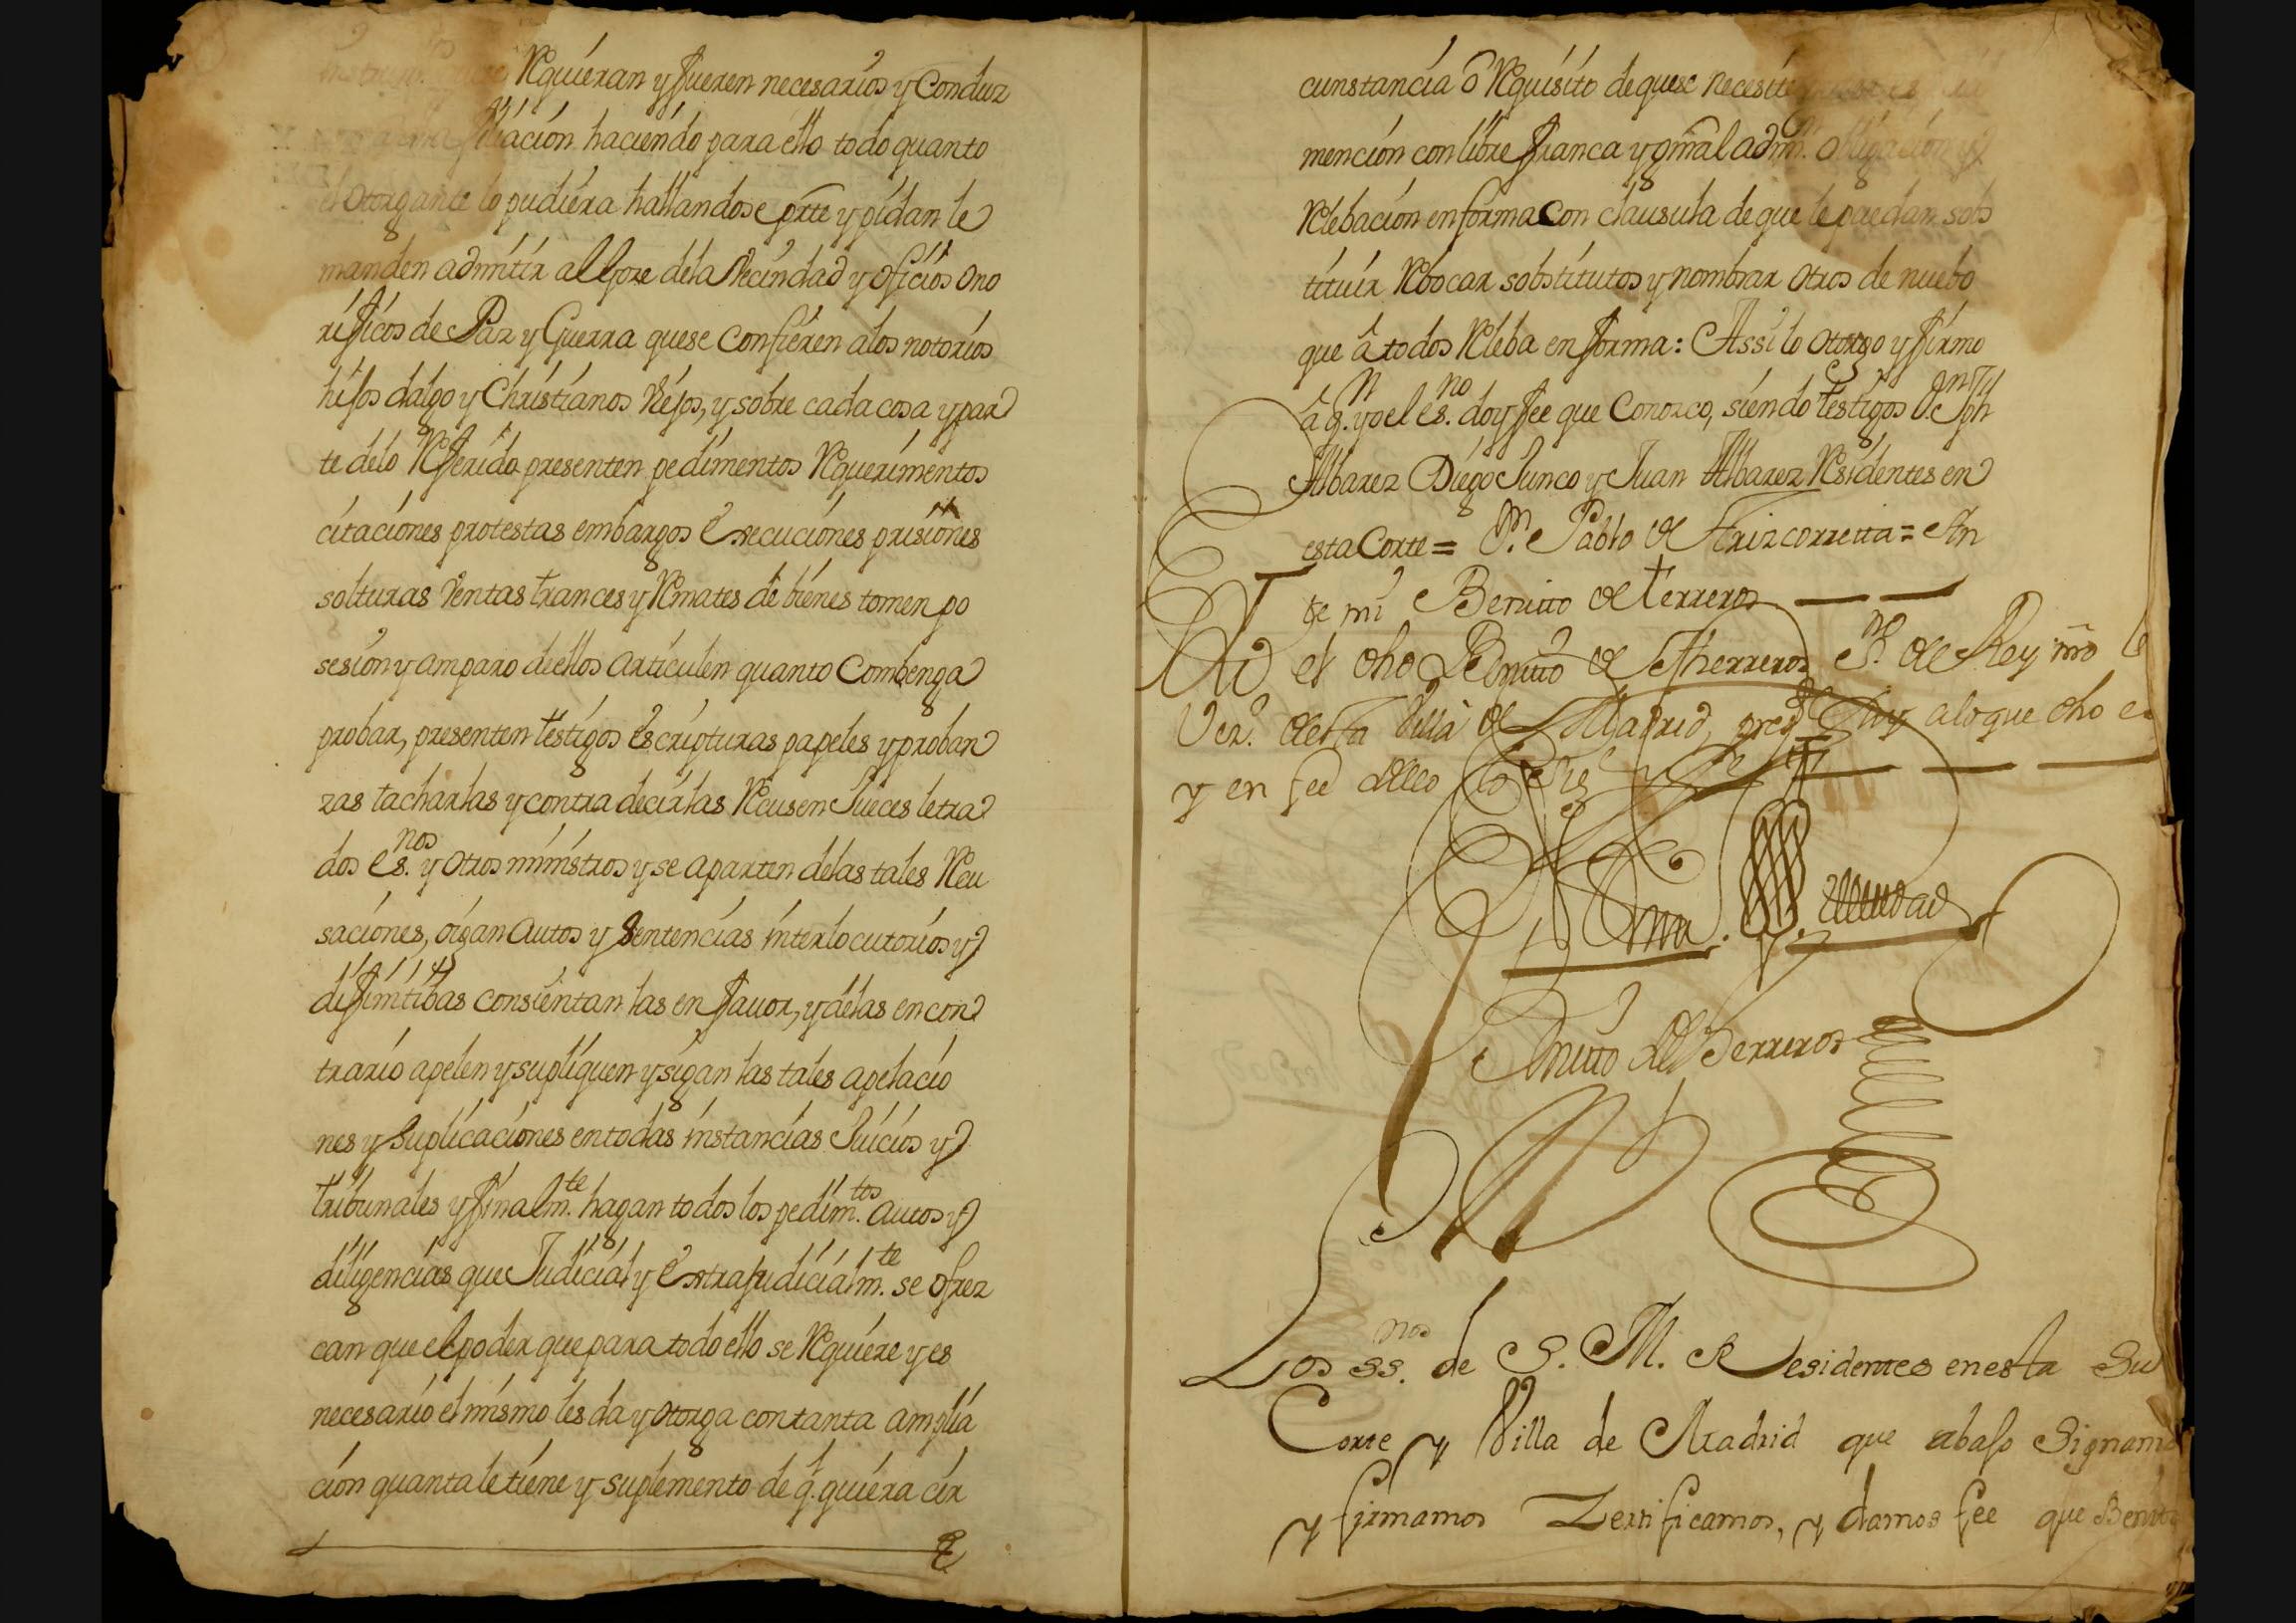 Requieran y fueren necesarios y Conduz
haciendo para ello todo quanto
el otorgante lo pudiera hallandose prte y pidan le
manden admitir al Goze dela Vecindad y oficios Ono
rificos de Paz y Guerra quese Confieren alos notorios
hijos dalgo y Christianos Viejos, y sobre cada cosa y par
te delo Referido presenten pedimentos Requerimentos
citaciones protestas embargos Execuciones prisiones
solturas Ventas trances y Remates de bienes tomen po
sesion y amparo diellos articulen quanto Combenga
probar, presenten testigos Escripturas papeles y proban
zas tacharlas y contra decirlas Recusen Jueces letra
dos es.nos y otros ministros y se aparten delas tales Recu
saciones, oigan autos y Sentencias interlocutorios y
difinitibas consientan las en favor, y delas en con
trario apelen y supliquen y sigan las tales apelacio
nes y Suplicaciones en todas instancias Juicios y
tribunales y finalm.te hagan todos los pedim.tos autos y
diligencias que Judicial y Extrajudicialm.te se ofrez
can que el poder que para todo ello se Requiere y es
necesario el mismo les da y otorga con tanta amplia
cion quanta le tiene y suplemento de q.l quiera cir
cunstancia ô Requisito de quese necesite
mencion con libre franca y gral adm.n obligacion y
Relebacion en forma Con clausula de que le puedan sobs
tituir Rebocar sobstitutos y nombrar otros de nuebo
que â todos Releba en forma: Assi lo otorgo y firmo
â q.n yo el es.no doy fee que Conozco, siendo testigos D.n Jph
Albarez Diego Junco y Juan Albarez Residentes en
esta Corte = D.n Pablo de Arizcorreta = An
te mi Benitto de Terreros
el dho Benitto de Therreros S.no del Rey nro
Vez.o desta Villa de Madrid, pres.te fuy alo que dho es
y en fee dello lo signé y firmé
Benitto de Terreros
Los ss.nos de S. M. Residentes en esta Su
Corte y Villa de Madrid que abajo Signamos
y firmamos Zertificamos, y damos fee que Benito